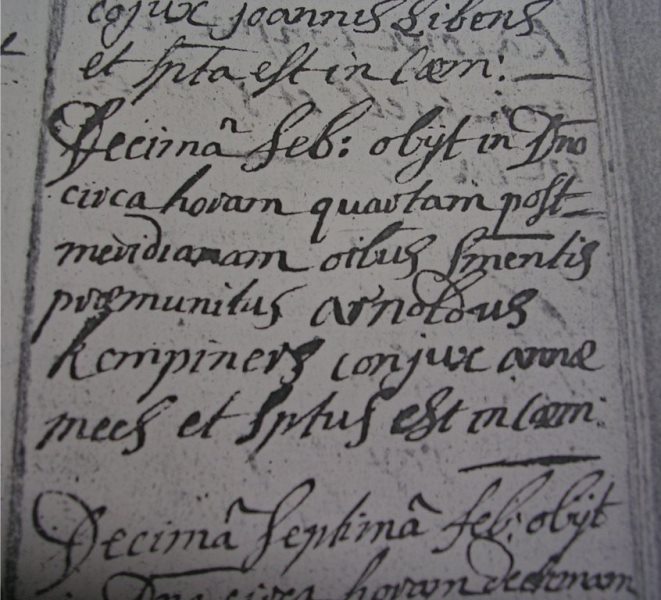 cojux joannis Libens
et Spta est in Cœm:
Decimâ feb: obijt in Dno
circa horam quartam post-
meridianam oibus Smentis
præmunitus arnoldus
Kempiners conjux annæ
mees et Sptus est in Cœm:
Decimâ septimâ feb: obijt
in Dno circa horam decimam